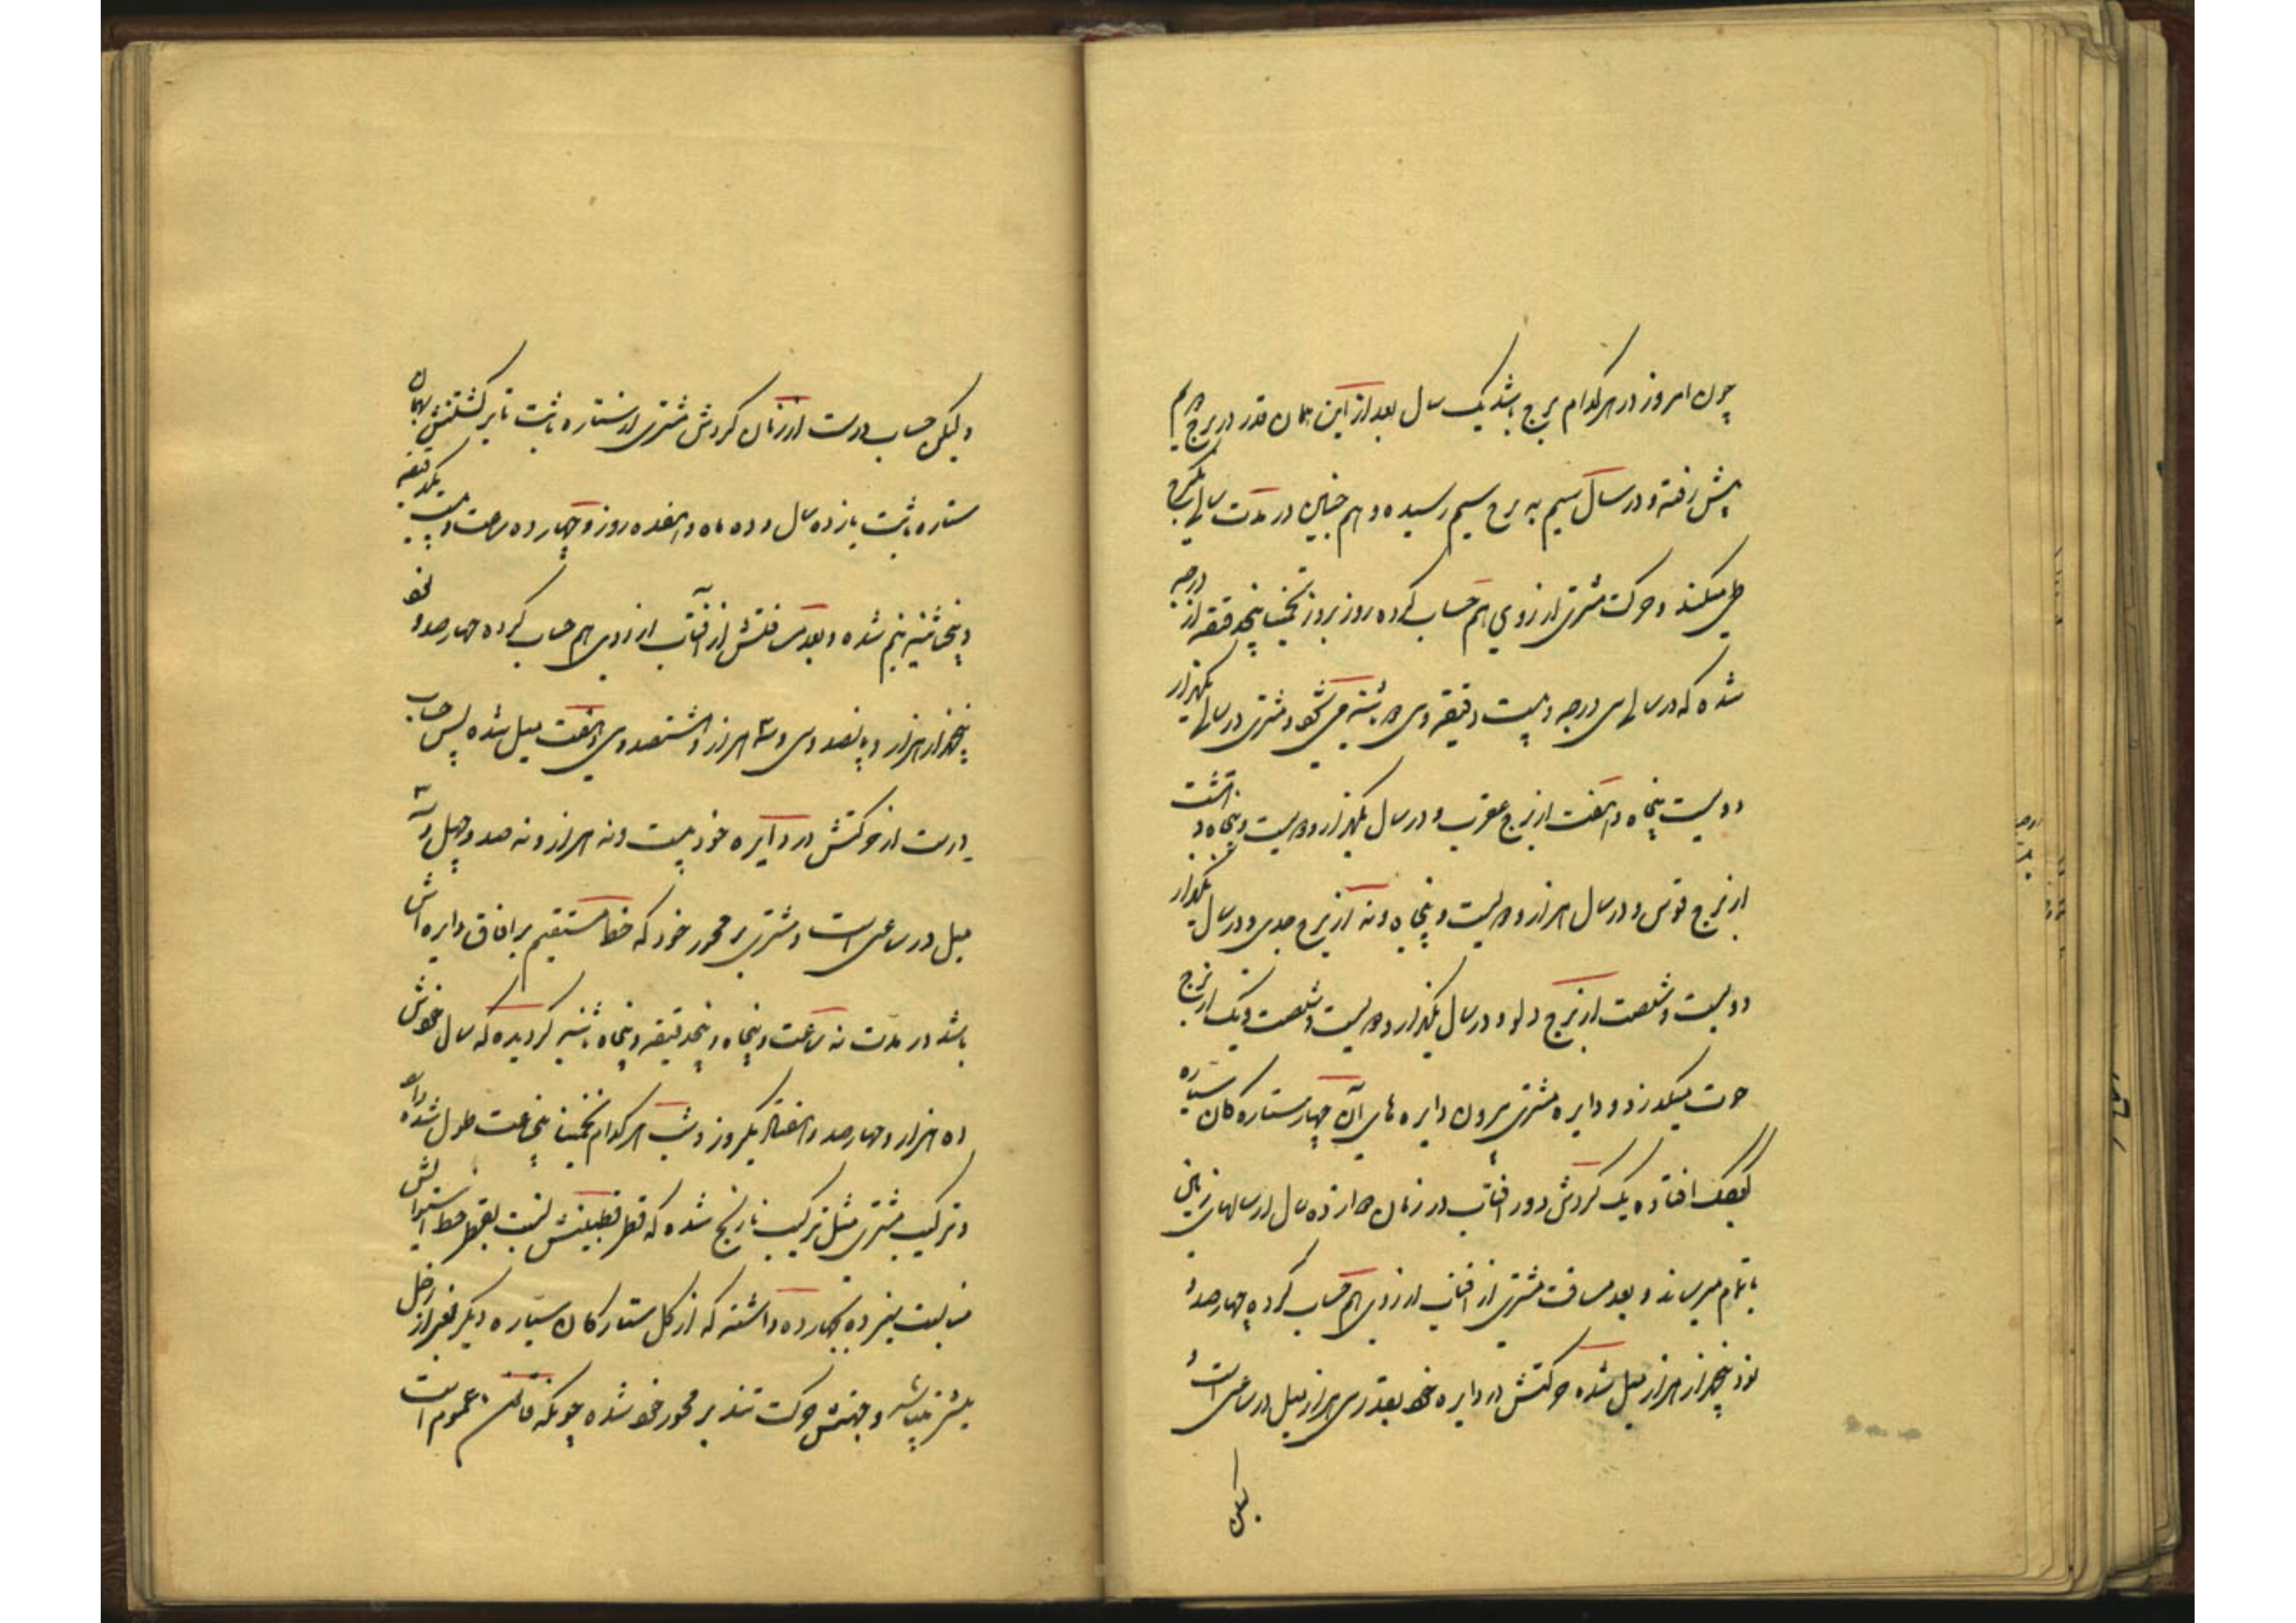 چون امروز در هر کدام برج باشد یک سال بعد از این همان قدر در برج دویم
پیش رفته و در سال سیم به برج سیم رسیده و هم چنین در مدت سالی یکبرج
طی میکند و حرکت مشتری از روی هم حساب کرده روز بروز تخمینا پنجدقیقه از درجه
شده که در سالی سی درجه و بیست دقیقه و سی دو ثانیه می شود و مشتری در سال یکهزار
دویست پنجاه و هفت از برج عقرب و در سال یکهزار دویست و پنجاه و هشت
از برج قوس و در سال هزار و دویست و پنجاه و نه از برج جدی و در سال یکهزار
دویست و شصت از برج دلو و در سال یکهزار دویست و شصت و یک از برج
حوت میگذرد و دایره مشتری بیرون دایره های آن چهار ستاره کان سیاره
کوچک افتاده یک گردش دور افتاب در زمان دوازده سال از سالهای زمین
باتمام میرساند و بعد مسافت مشتری از افتاب از روی هم حساب کرده چهار صد و
نود پنجهزار هزار میل شده حرکتش در دایره خود بقدر سی هزار میل در ساعتی است و
لیکن
ولیکن حساب درست از زمان گردش مشتری از ستاره ثابت تا برگشتنش بهمان
ستاره ثابت یازده سال و ده ماه و هفده روز و چهارده ساعت و بیست یکدقیقه
و پنجاثنیه نیم شده و بعد مسافتش از آفتاب از روی هم حساب کرده چهار صد و نود
پنجهزار هزار و پانصد و سی و سه هزار و هشتصد و سی و هفت میل شده پس حساب
درست از حرکتش در دایره خود بیست و نه هزار و نه صد و چهل و سه
میل در ساعتی است و مشتری بر محور خود که خط مستقیم بر افاق دایره اش
باشد در مدت نه ساعت و پنجاه و پنجدقیقه و پنجاه ثانیه گردیده که سال خودش
ده هزار و چهار صد و هفتاد یکروز و شب هر کدام تخمینا پنج ساعت طول شده
و ترکیب مشتری مثل ترکیب نارنج شده که قطر قطبینش نسبت بقطر خط استوایش
مناسبت سیزده بچهارده داشته که از کل ستارکان سیاره دیکر بغیر از زحل
بیشتر میباشد و جهتش حرکت تند بر محور خود شده چونکه قانون عموم است